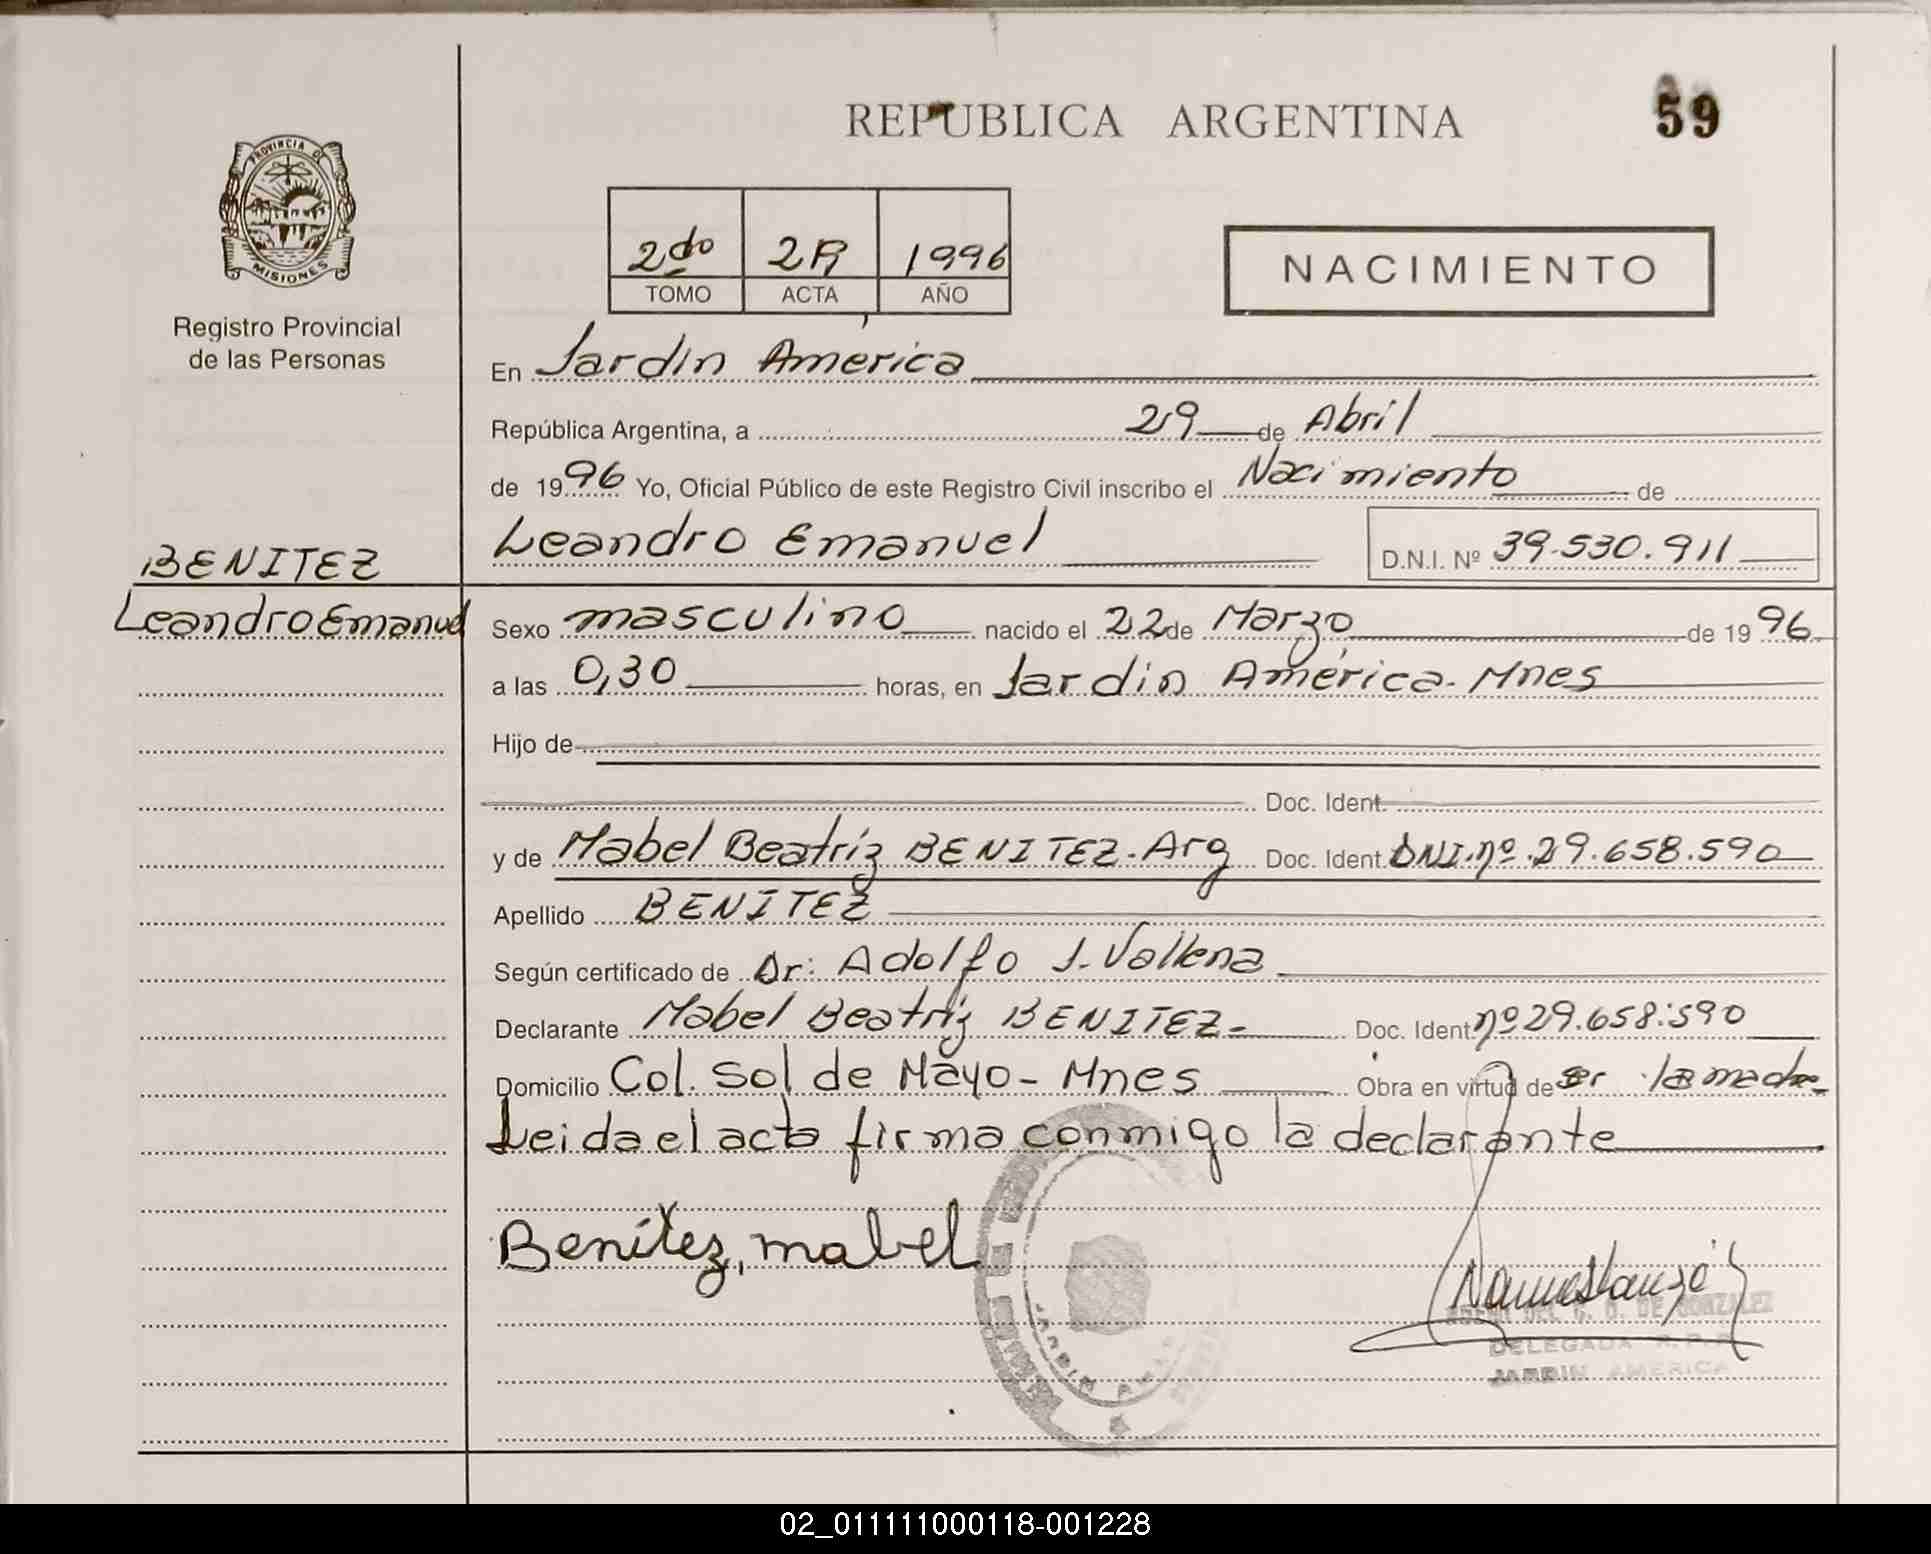 REPUBLICA ARGENTINA
59
PROVINCIA DE
MISIONES
Registro Provincial
de las Personas
2do 1996
TOMO ACTA AÑO
NACIMIENTO
En Jardín America
República Argentina, a 29 de Abril
de 1996 Yo, Oficial Público de este Registro Civil inscribo el Nacimiento de
Leandro Emanuel D.N.I. Nº 39.530.911
BENITEZ
Leandro Emanuel
Sexo masculino nacido el 22 de Marzo de 1996
a las 0,30 horas, en Jardín América. Mnes
Hijo de
Doc. Ident.
y de Mabel Beatríz BENITEZ. Arg Doc. Ident. DNI. nº. 29.658.590
Apellido BENITEZ
Según certificado de Dr: Adolfo J.
Declarante Mabel Beatríz BENITEZ- Doc. Ident. nº 29.658.590
Domicilio Col. Sol de Mayo- Mnes Obra en virtud de ser la madre
Leida el acta firma conmigo la declarante
Benítez, mabel
DE GONZALEZ
DELEGADA R.P.P
JARDIN AMERICA
02_011111000118-001228